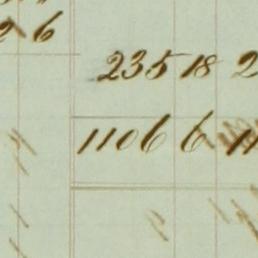 2 6
235 18 2
1106 6 11